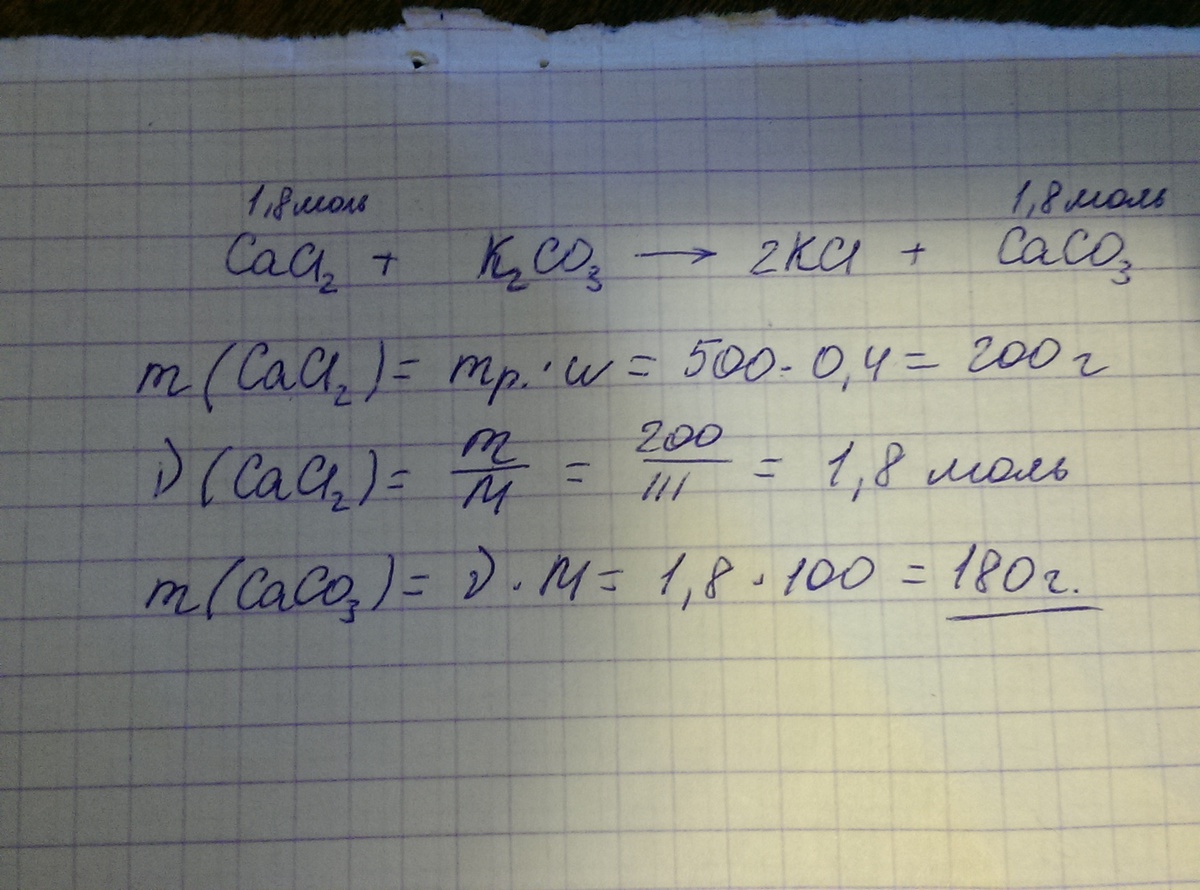 1,8 моль 1,8 моль
CaCl₂ + K₂CO₃ → 2KCl + CaCO₃
m (CaCl₂) = mр. · w = 500 · 0,4 = 200 г
ν (CaCl₂) = m/M = 200/111 = 1,8 моль
m (CaCO₃) = ν · M = 1,8 · 100 = 180 г.